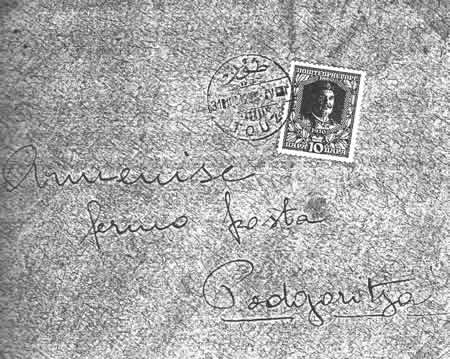 ПАРА 10 ПАРА
Armenise
fermo posta
Podgoritza